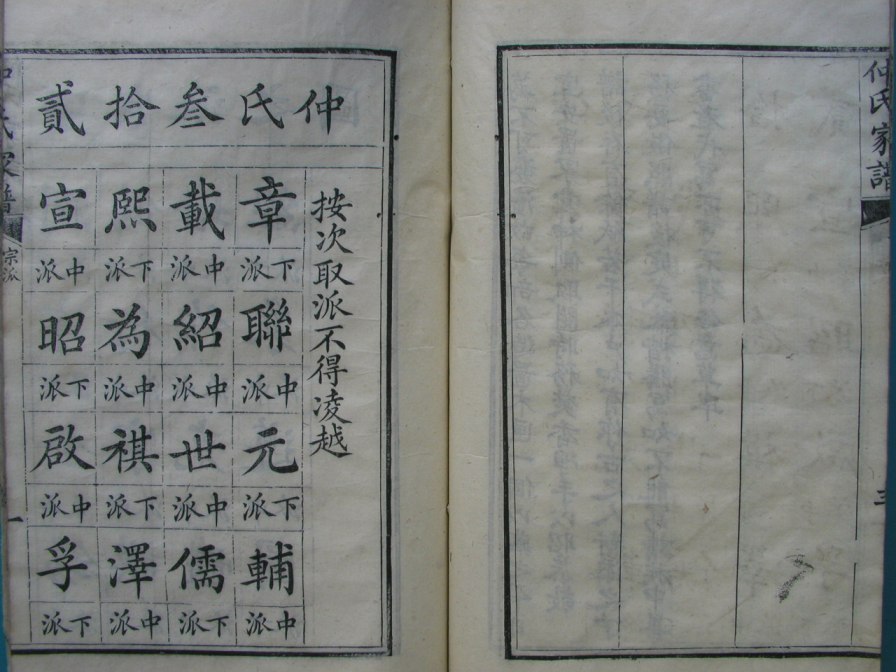 仲氏家譜
三
仲氏叁拾貳
按次取派不得凌越
章載熙宣
下派 中派 下派 中派
聯紹為昭
中派 中派 中派 下派
元世祺啟
下派 中派 下派 中派
輔儒澤孚
中派 下派 中派 下派
宗派
一